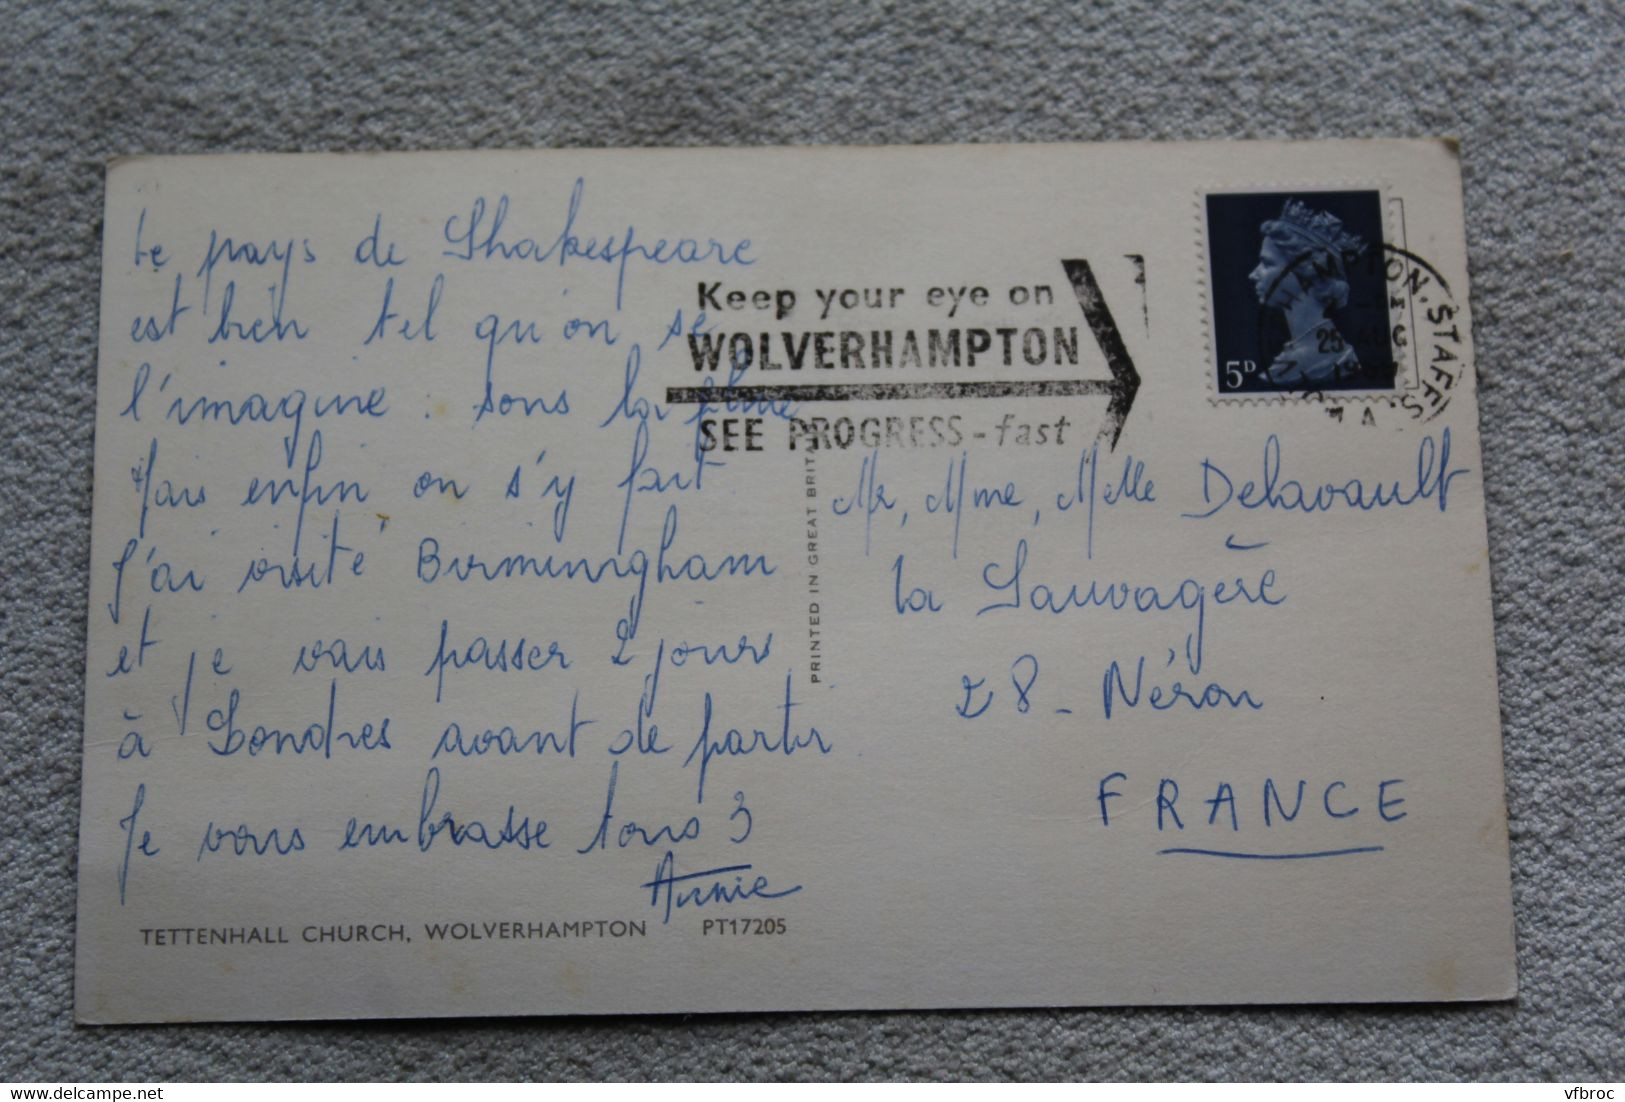 Le pays de Shakespeare
est bien tel qu'on se
l'imagine : sous la pluie
Mais enfin on s'y fait
J'ai visité Birminigham
et je vais passer 2 jours
à Londres avant de partir
Je vous embrasse tous 3
Annie
TETTENHALL CHURCH, WOLVERHAMPTON PT17205
PRINTED IN GREAT BRITAIN
Keep your eye on
WOLVERHAMPTON
SEE PROGRESS - fast
5D
HAMPTON, STAFFS.
25 AUG
Mr, Mme, Melle Delavault
la Sauvagère
28 - Néron
FRANCE
vfbroc
delcampe.net